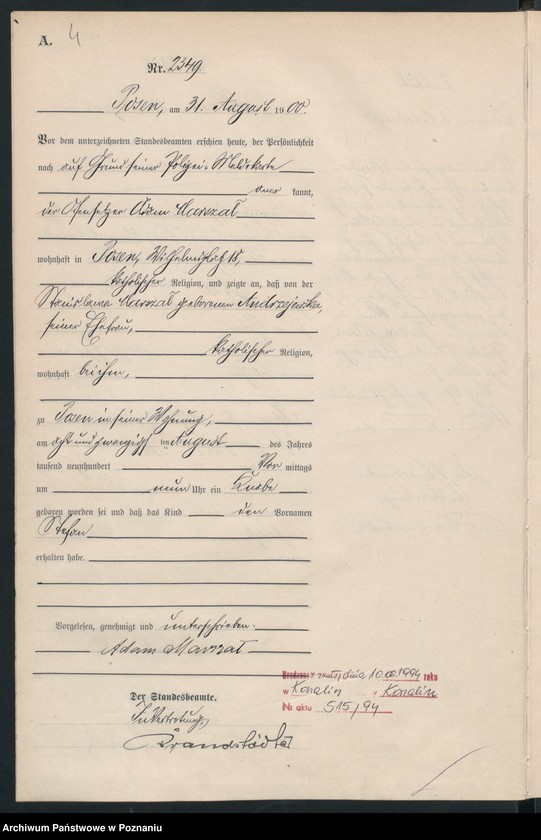 A. 4
Nr. 2349
Posen, am 31. August 1900.
Vor dem unterzeichneten Standesbeamten erschien heute, der Persönlichkeit
nach auf Grund seiner Polizei-Meldekarte
aner kannt,
der Ofensetzer Adam Marszał
wohnhaft in Posen, Wilhelmsplatz 18,
katholischer Religion, und zeigte an, daß von der
Stanislawa Marszał geborenen Andrzejewska,
seiner Ehefrau,
katholischer Religion,
wohnhaft bei ihm,
zu Posen in seiner Wohnung,
am acht und zwanzigsten August des Jahres
tausend neunhundert Vor mittags
um neun Uhr ein Knabe
geboren worden sei und daß das Kind den Vornamen
Stefan
erhalten habe.
Vorgelesen, genehmigt und unterschrieben.
Adam Marszał
dnia 10.  1994 roku
w Konalin
Nr aktu 515/94
Der Standesbeamte.
In Vertretung,
Brandstädter
Archiwum Państwowe w Poznaniu